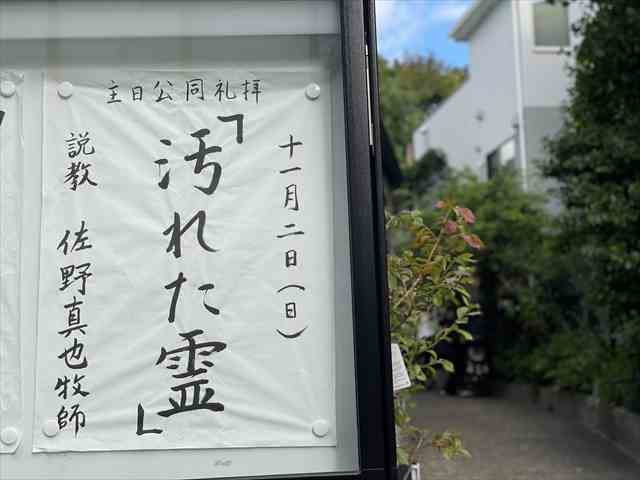 主日公同礼拝
十一月二日(日)
「汚れた霊」
説教 佐野真也牧師